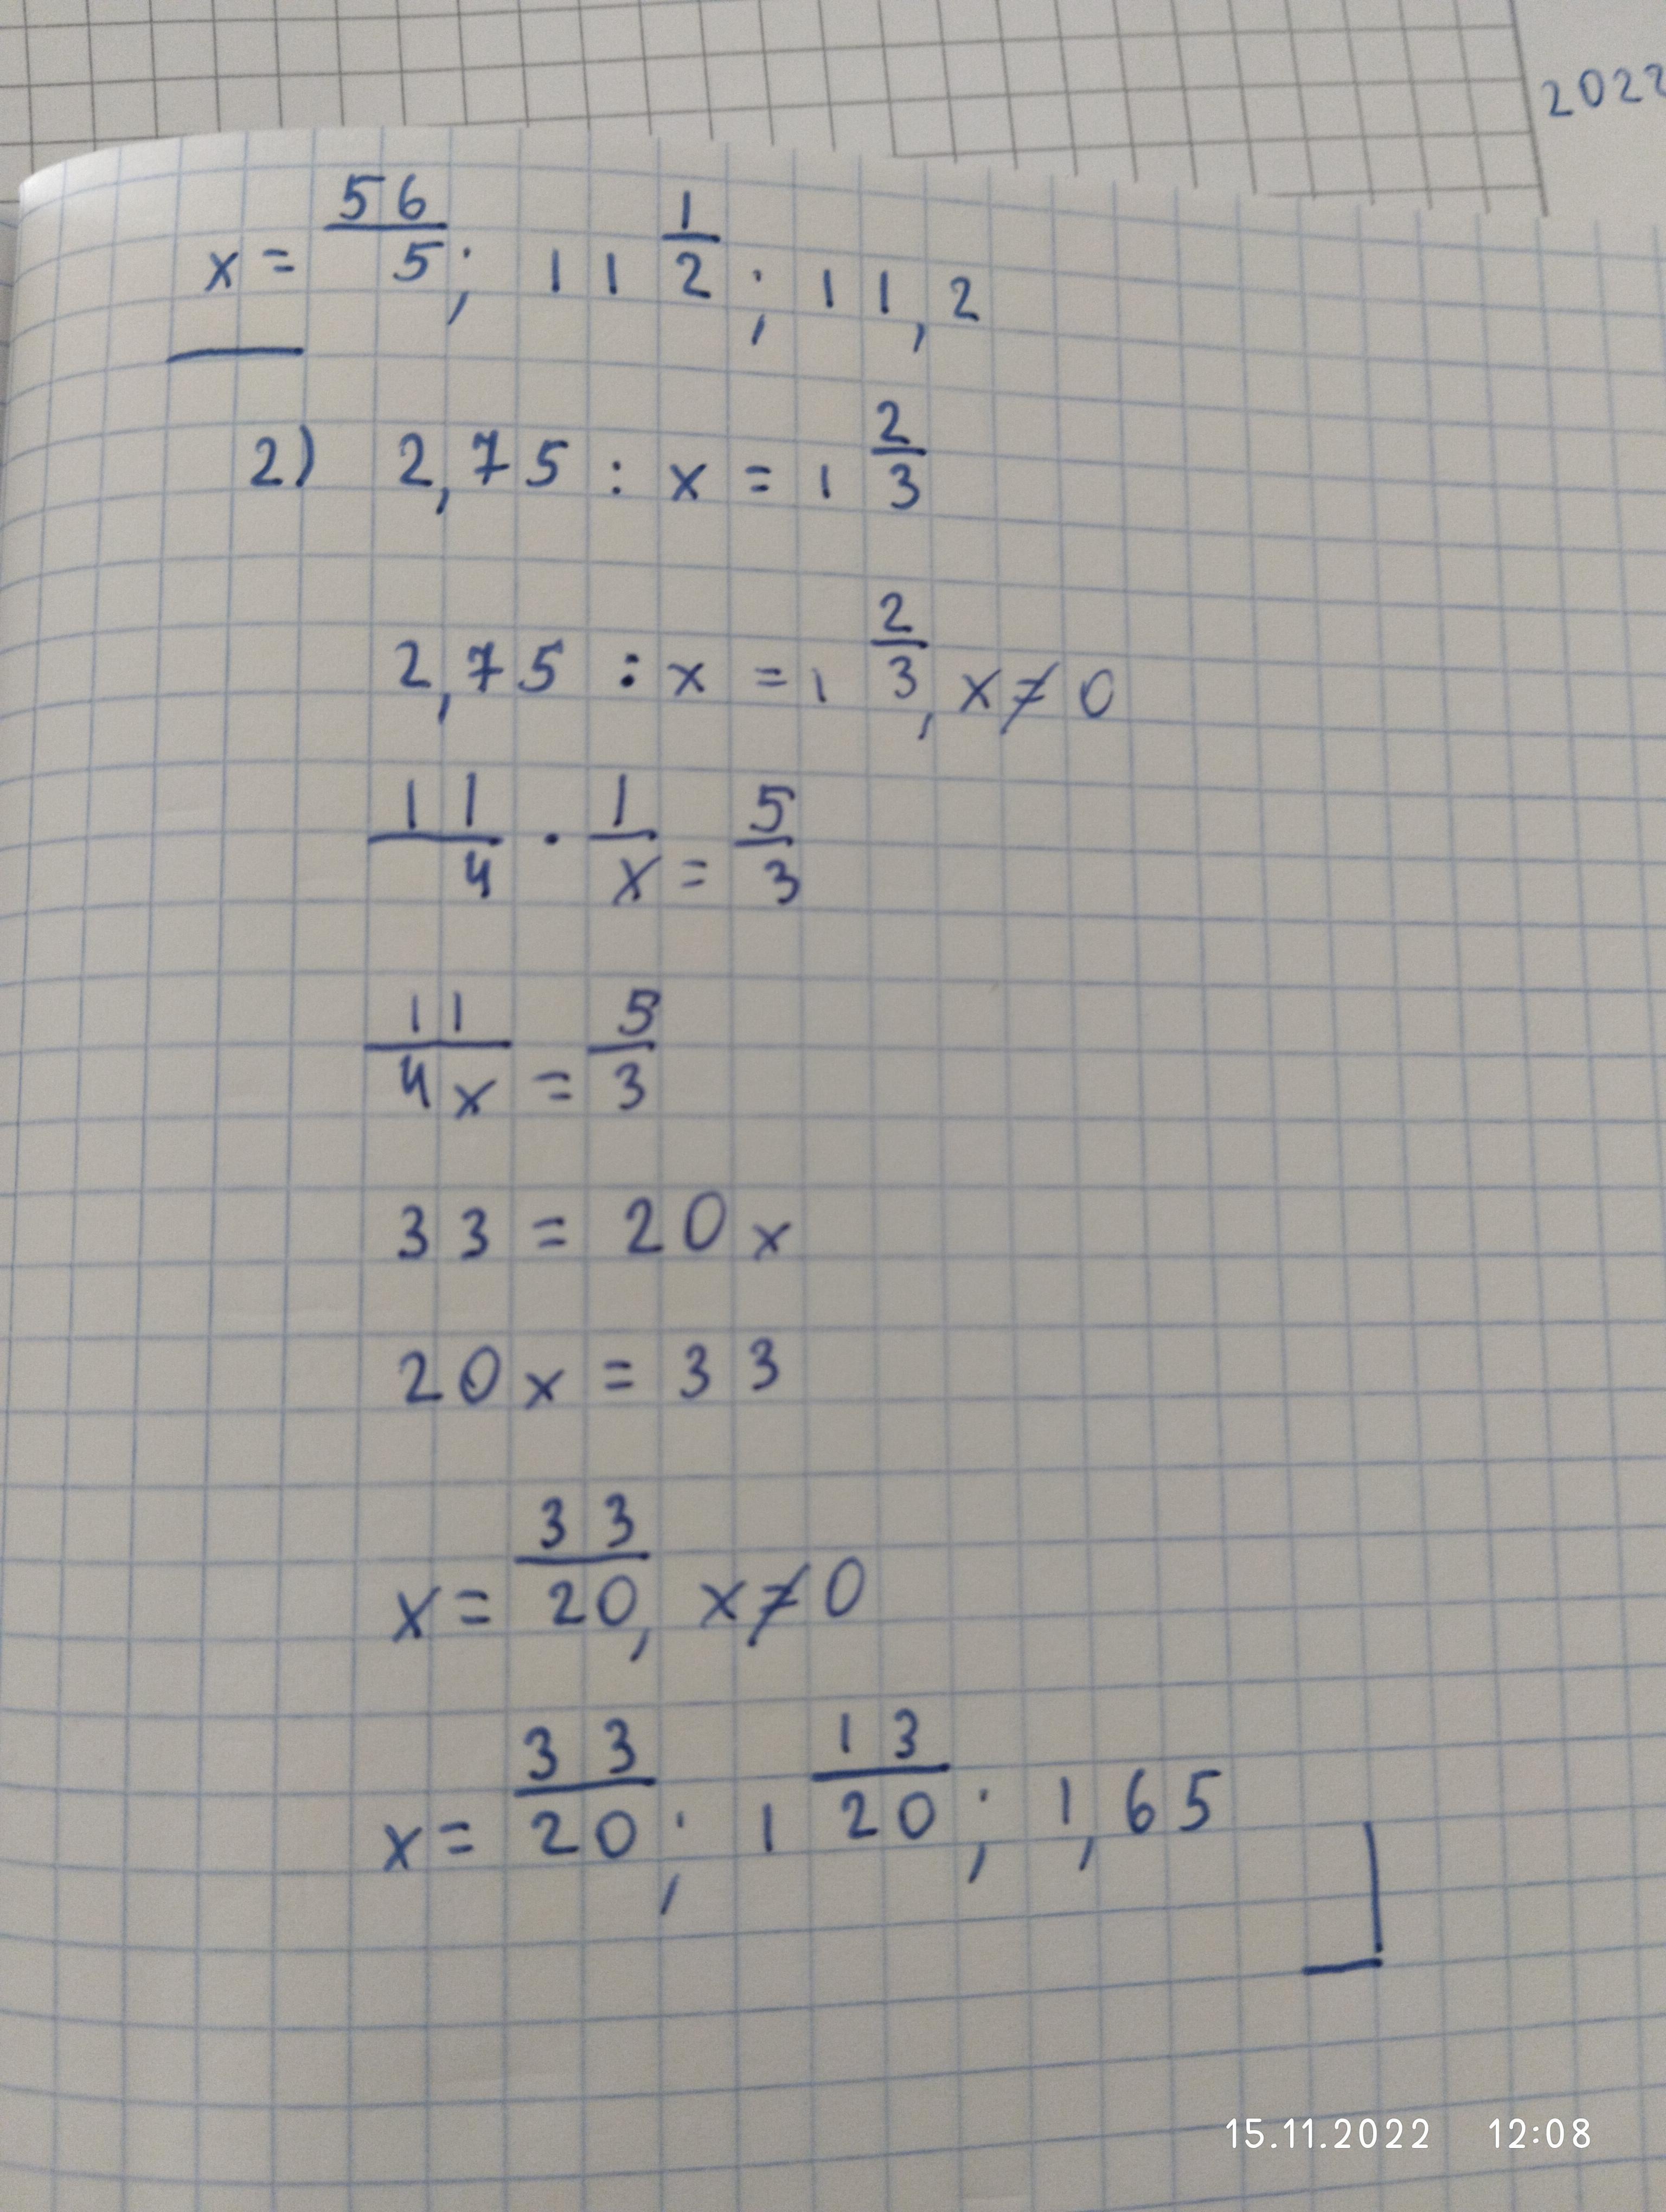 2022
x = 56/5; 11 1/2; 11,2
2) 2,75 : x = 1 2/3
2,75 : x = 1 2/3, x ≠ 0
11/4 · 1/x = 5/3
11/4x = 5/3
33 = 20x
20x = 33
x = 33/20, x ≠ 0
x = 33/20; 1 13/20; 1,65
15.11.2022 12:08